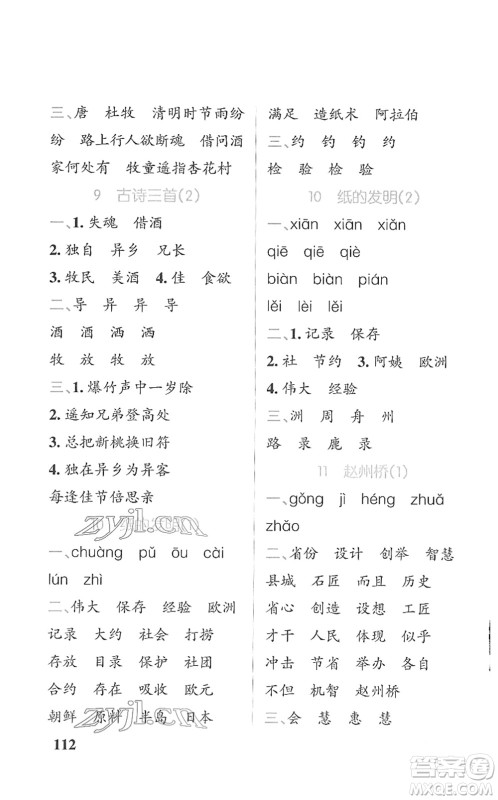 三、唐 杜牧 清明时节雨纷
纷 路上行人欲断魂 借问酒
家何处有 牧童遥指杏花村
9 古诗三首(2)
一、1. 失魂 借酒
2. 独自 异乡 兄长
3. 牧民 美酒 4. 佳 食欲
二、导 异 异 导
酒 酒 洒 洒
牧 放 牧 放
三、1. 爆竹声中一岁除
2. 遥知兄弟登高处
3. 总把新桃换旧符
4. 独在异乡为异客
每逢佳节倍思亲
zyjl.cn
一、chuàng pǔ ōu cài
lún zhì
二、伟大 保存 经验 欧洲
记录 大约 社会 打捞
存放 目录 保护 社团
合约 存在 吸收 欧元
朝鲜 原料 半岛 日本
zyjl.cn
112
满足 造纸术 阿拉伯
三、约 钓 钓 约
检 验 检 验
10 纸的发明(2)
一、xiān xiān xiǎn
qiē qiē qiē
biàn biàn pián
lěi lèi lěi
二、1. 记录 保存
2. 社 节约 3. 阿姨 欧洲
4. 伟大 经验
三、洲 周 舟 州
路 录 鹿 录
11 赵州桥(1)
一、gǒng jì héng zhuǎ
zhǎo
二、省份 设计 创举 智慧
县城 石匠 而且 历史
省心 创造 设想 工匠
才干 人民 体现 似乎
冲击 节省 举办 各自
不但 机智 赵州桥
三、会 慧 惠 慧
答案圈
MXQE.COM